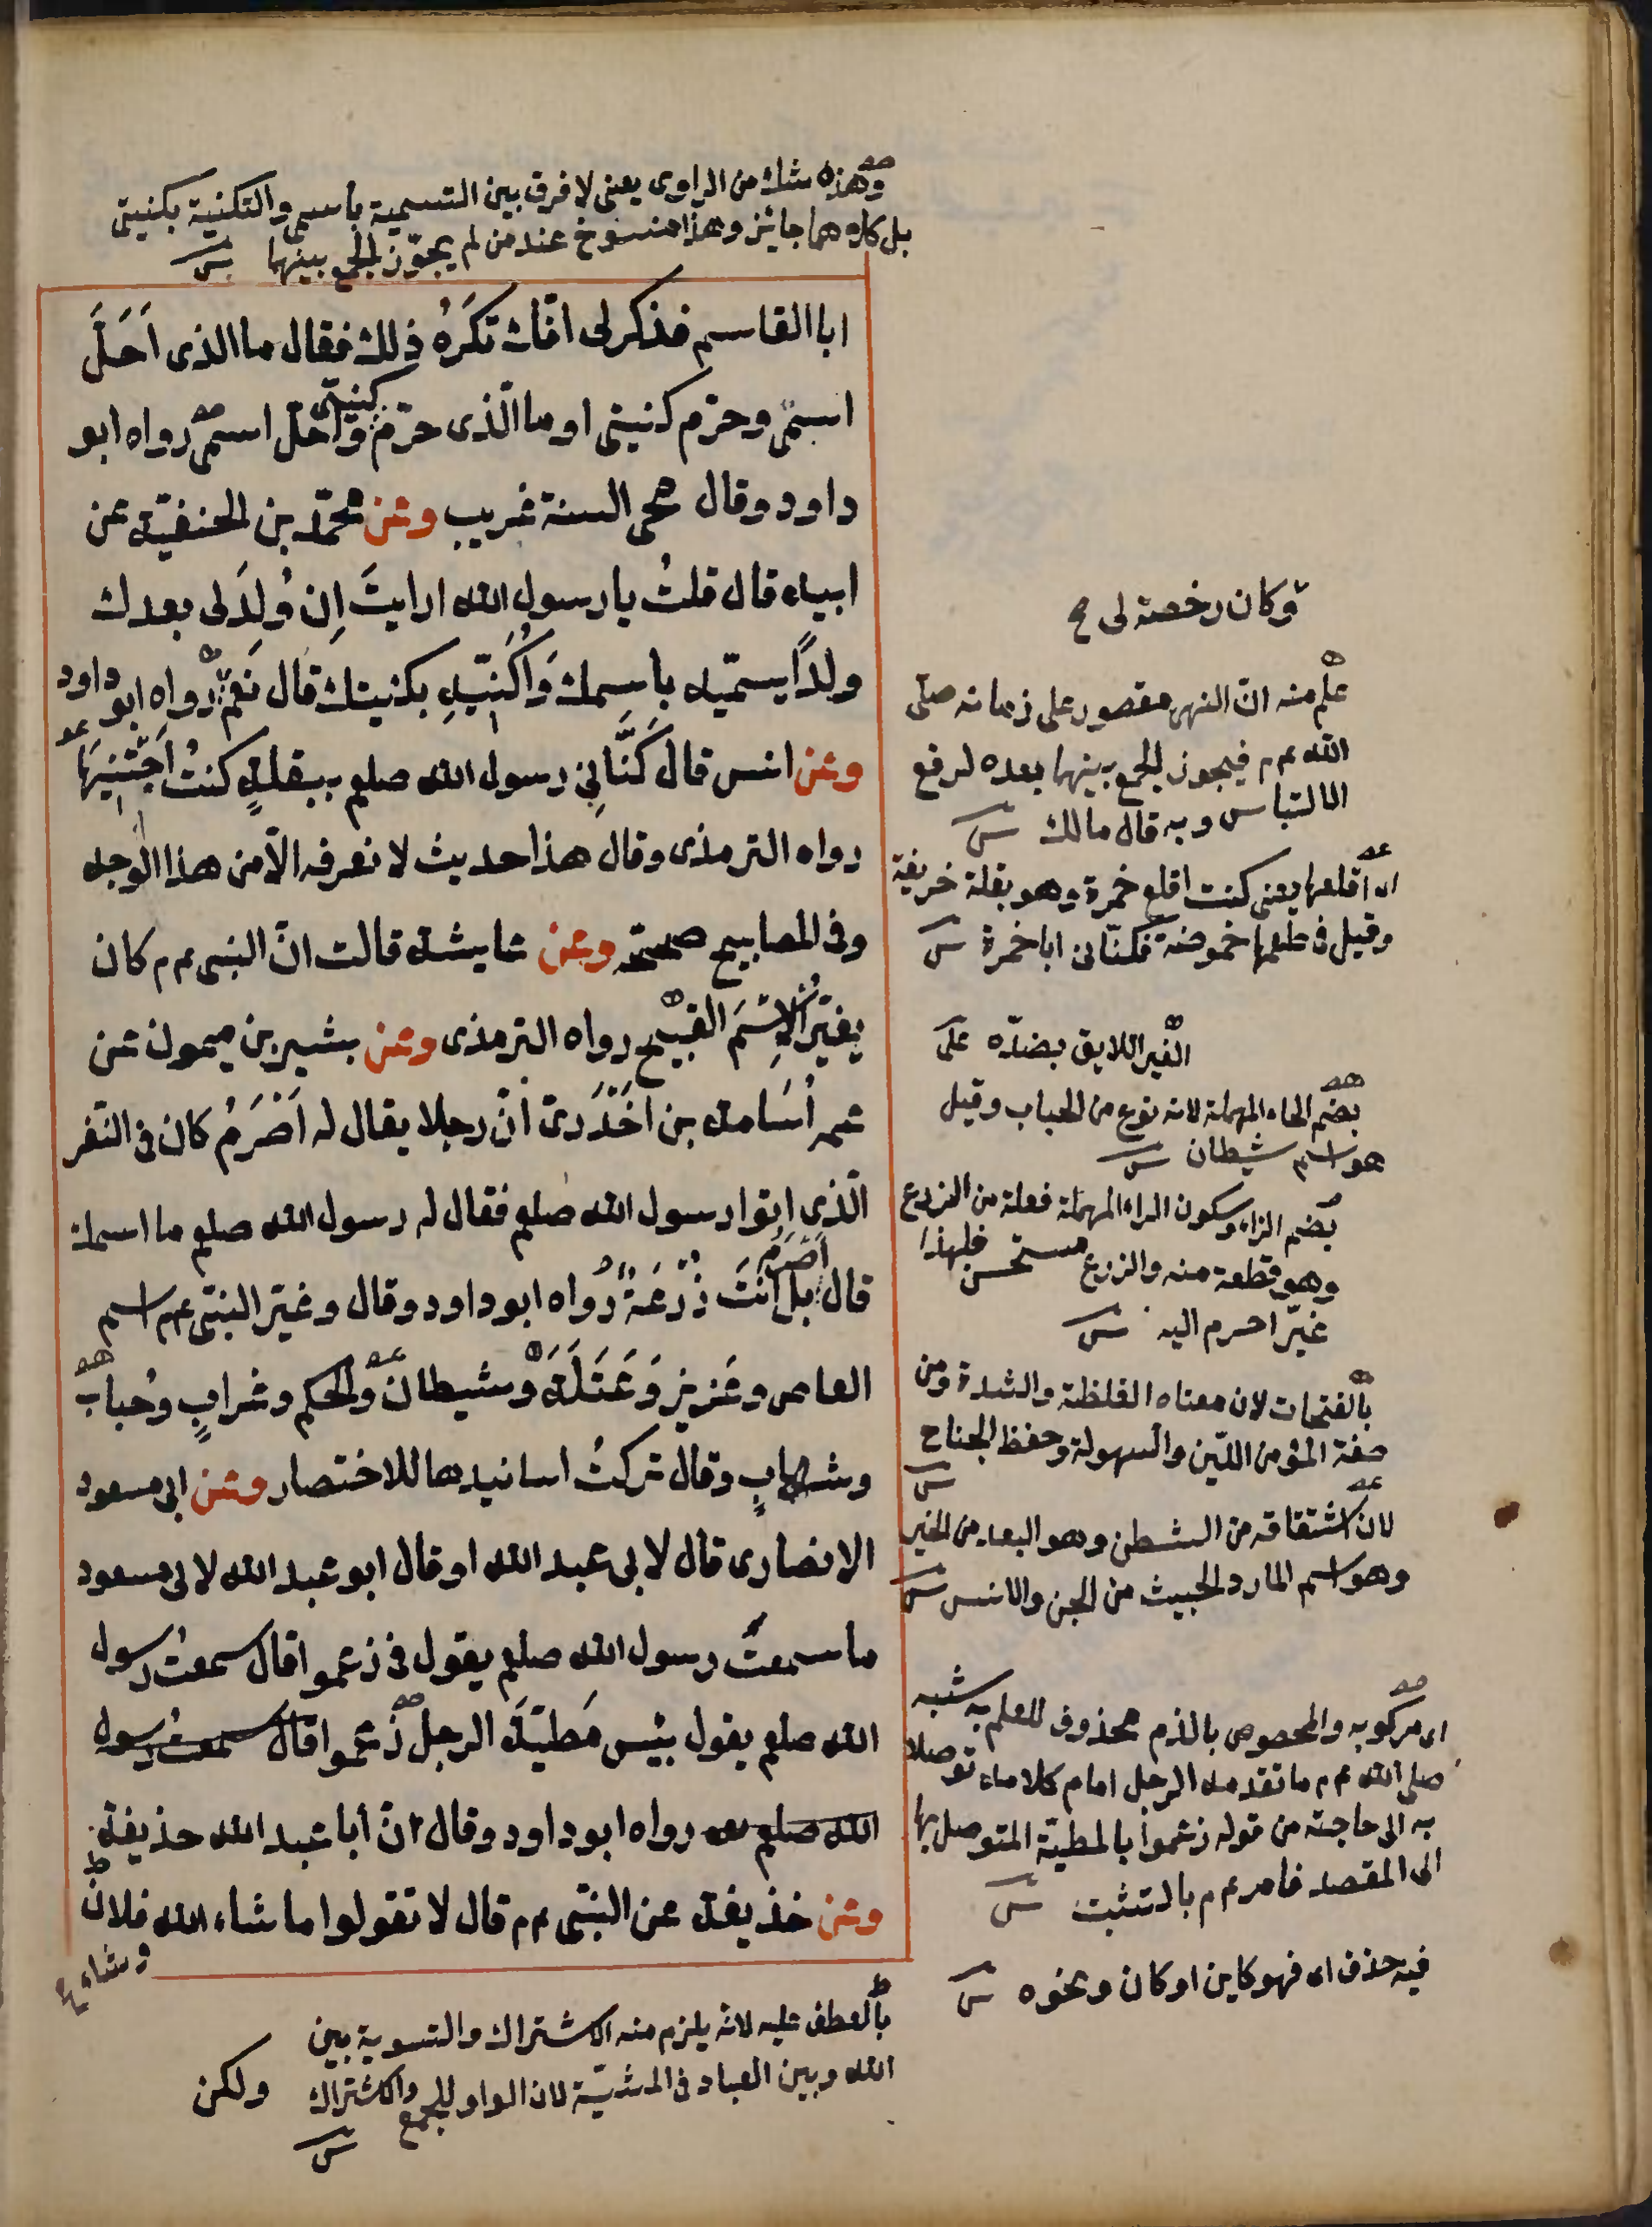 وهذه شك من الراوى يعنى لا فرق بين التسمية باسمى والتكنية بكنيتى
بل كلاهما جايز وهذا منسوخ عند من لم يجوّز الجمع بينهما
ابا القاسم فذكر لى انّك تكَرَهُ ذلك فقال ما الذى اَحَلَّ
اسمى وحرّم كنيتى او ما الّذى حرّم كنيتى واحلّ اسمى رواه ابو
داود وقال محى السنة غريب وعن محمّد بن الحنفيّة عن
ابيه قال قلتُ يا رسول الله ارايتَ اِن وُلِدَ لى بعدك
ولدًا يسمّيه باسمك وَاُكَنّيهِ بكنيتك قال نَعَم رواه ابو داود
وعن انس قال كَنَّانِي رسول الله صلعم ببقلةٍ كنتُ اَجْتَنِيهَا
رواه الترمذى وقال هذا حديث لا نعرفه الّا من هذا الوجه
وفى المصابيح صحّحه وعن عايشة قالت انّ النبى عم كان
يغيّر الاِسْمَ القبيح رواه الترمذى وعن بشير بن ميمون عن
عمه اُسَامة بن اَخْدَرىّ انّ رجلا يقال له اَصْرَمُ كان فى النّفر
الّذى اتوا رسول الله صلعم فقال له رسول الله صلعم ما اسمك
قال اَصْرَمُ بل اَنْتَ زُرْعَةُ رواه ابو داود وقال وغيّر النبّى عم اسم
العاص وعَزيز وَعَتَلَةَ وشيطان والحكم وغرابٍ وحُباب
وشهابٍ وقال تركتُ اسانيدها للاختصار وعن ابى مسعود
الانصارى قال لابى عبد الله او قال ابو عبد الله لابى مسعود
ما سمعتَ رسول الله صلعم يقول فى زعموا قال سمعت رسول
الله صلعم يقول بئيس مَطيّةَ الرجل زعموا قال سمعت رسول
الله صلعم رواه ابو داود وقال انّ أبا عبد الله حذيفة
وعن حذيفة عن النبّى عم قال لا تقولوا ما شاء الله فلان
وشاء
وكان رخصة لى
علم منه انّ النهى مقصور على زمانه صلّى
الله عم فيجوز الجمع بينهما بعده لرفع
الالتباس وبه قال مالك
اى اقلعها يعنى كنت اقلع خمزة وهو بقلة خريفية
وقيل فى طعمها حموضة فكنّانى ابا حمزة
الغير اللايق بضدّه
بضم الحاء المهملة لانه نوع من الحباب وقيل
هو اسم شيطان
بضم الزاء وسكون الراء المهملة فعلة من الزرع
وهو قطعة منه والزرع مستحسن فلهذا
غيّر اصرم اليه
بالفتحات لان معناه الغلظة والشدة ومن
صفة المؤمن اللّين والسهولة وحفظ الجناح
لانّ اشتقاقه من الشطن وهو البعد من الخير
وهو اسم المارد الخبيث من الجن والانس
اى مركوبه والمحصوص بالذم محذوف للعلم به شبه
صلى الله عم ما تقدمه الرجل امام كلامه توصلا
به الى حاجته من قوله زعموا بالمطيّة المتوصل بها
الى المقصد فامر عم بالتثبت
فيه حذف اى فهو كاين او كان ونحوه
بالعطف عليه لانه يلزم منه الاشتراك والتسوية بين
الله وبين العباد فى المشيّة لان الواو للجمع والاشتراك
ولكن